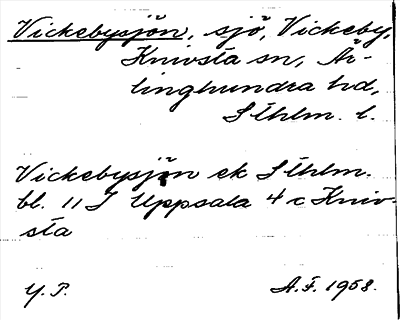 Vickebysjön, sjö, Vickeby,
Knivsta sn, Är-
linghundra hd,
Sthlm. l.
Vickebysjön ek Sthlm.
bl. 11 I Uppsala 4 c Kniv-
sta
Y. P. A.F. 1958.